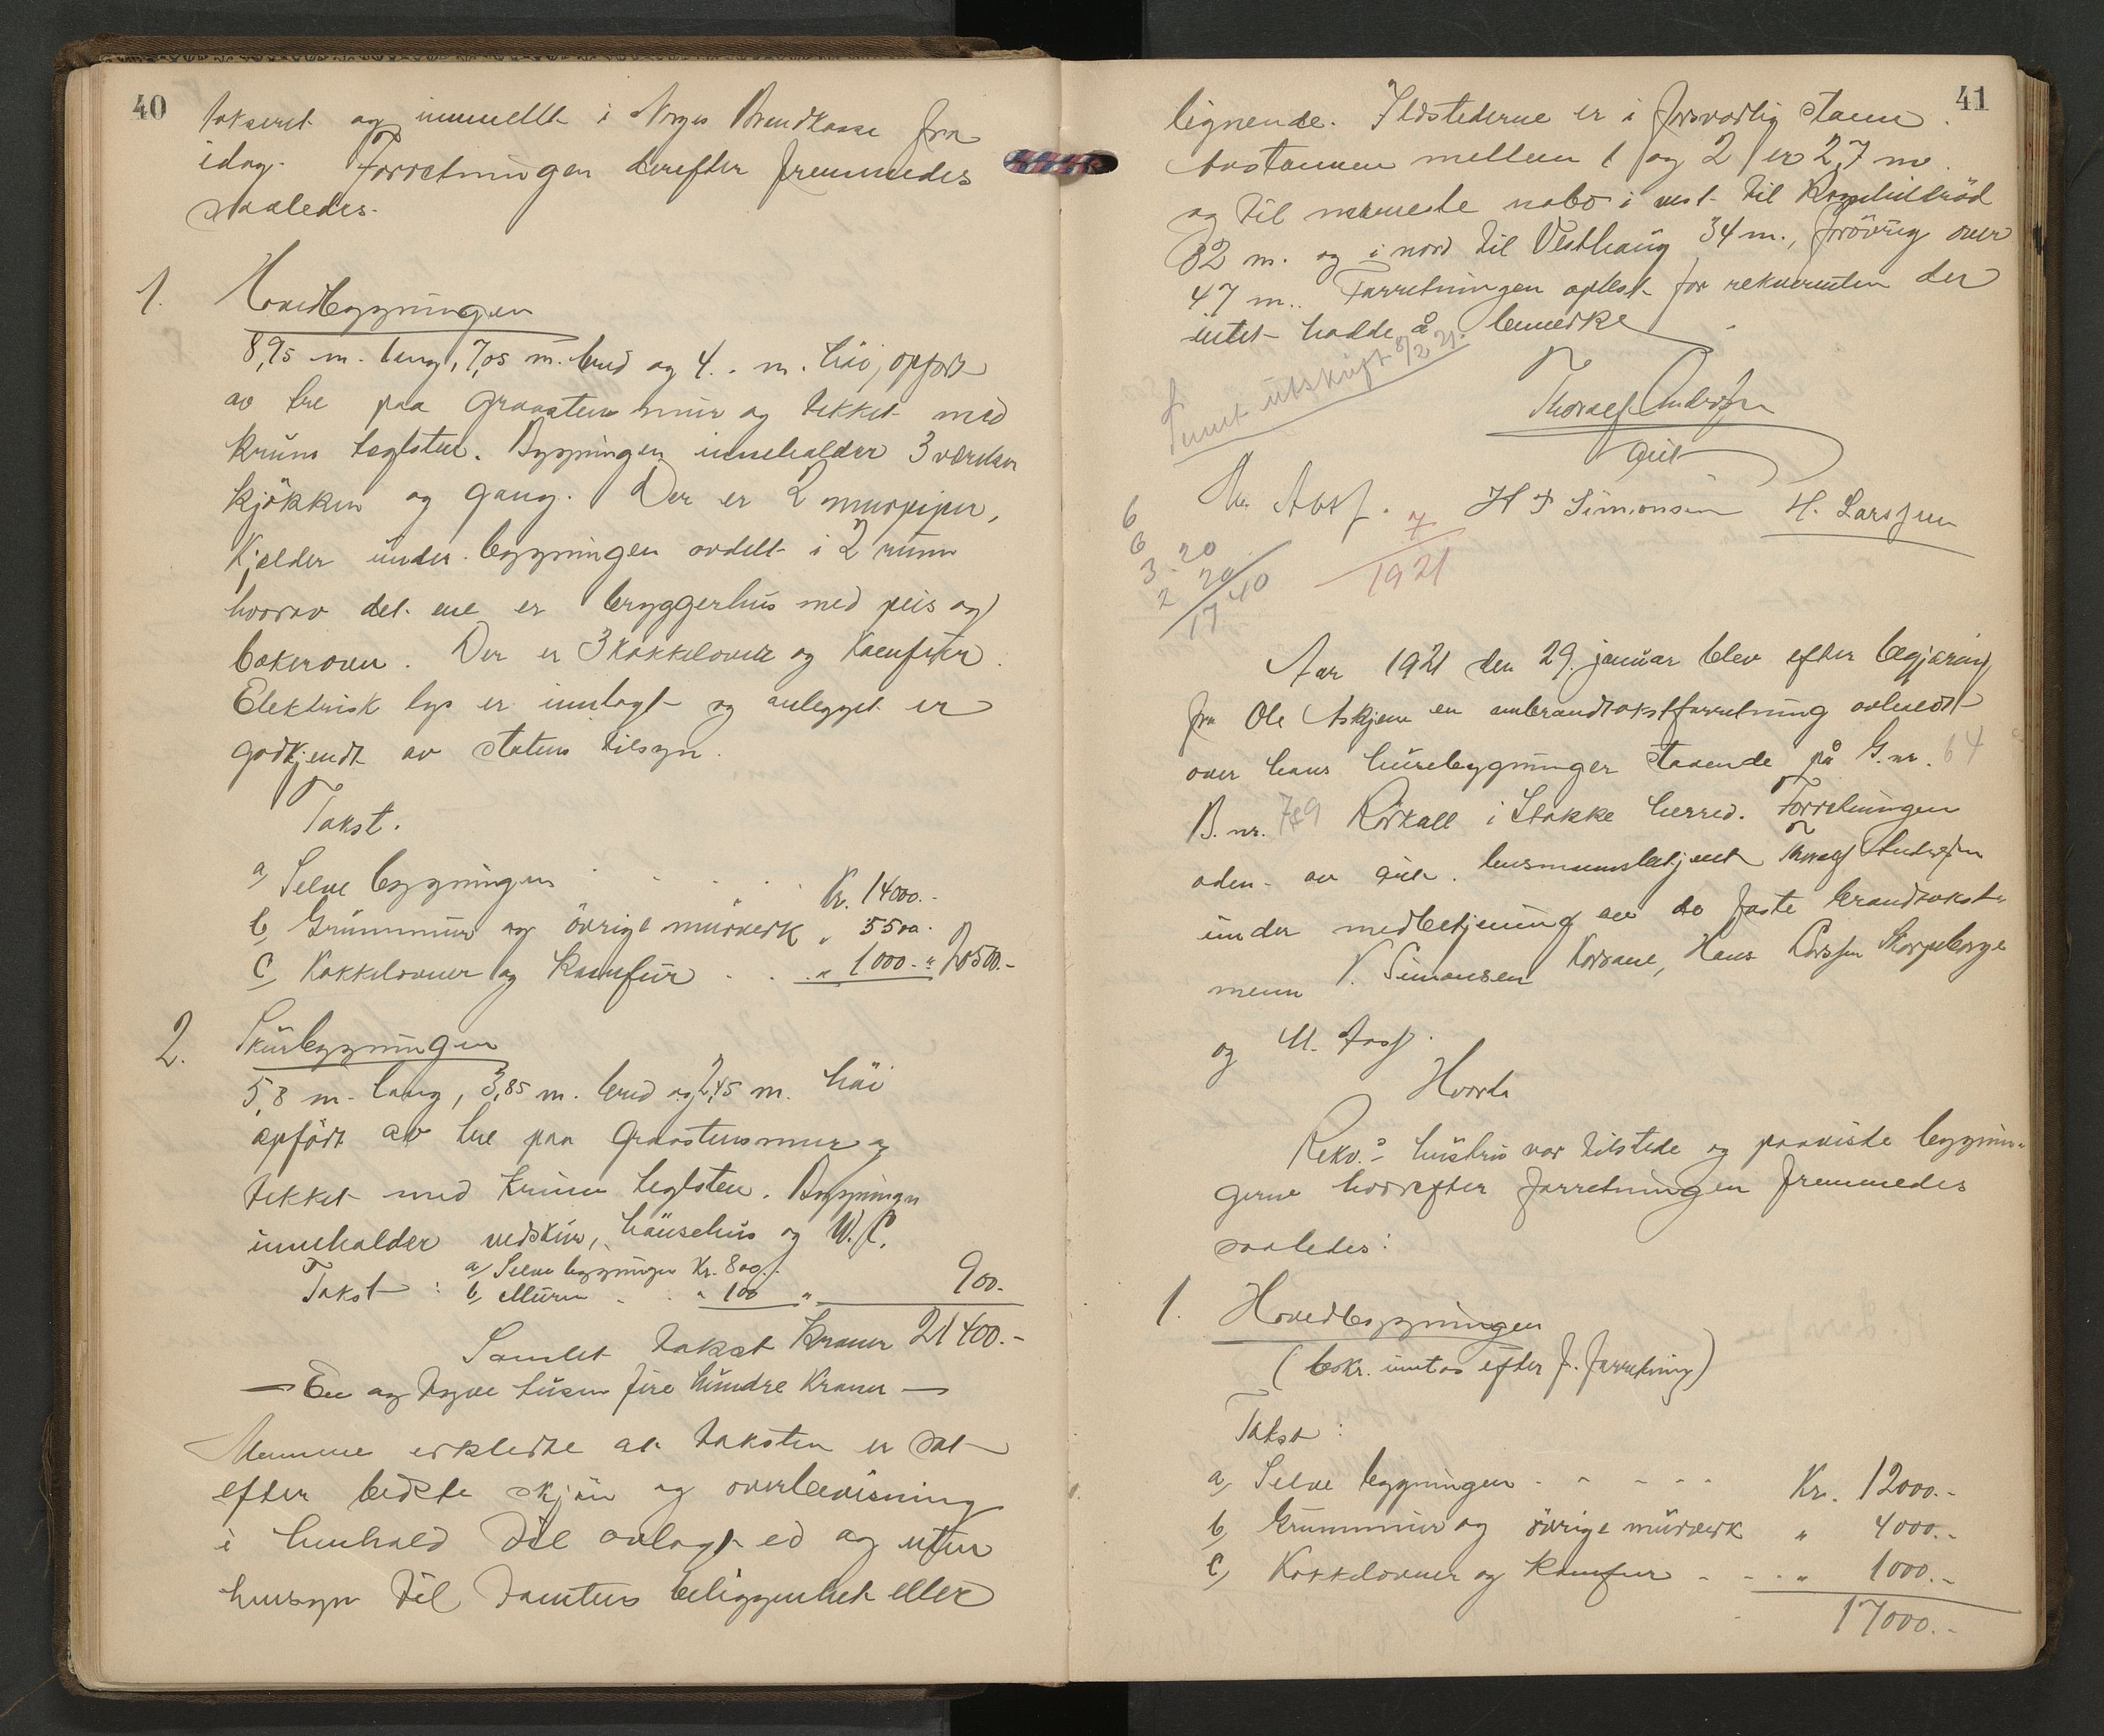 40
takseret og innmeldt i Norges Brandkasse fra
idag. Forretningen derefter fremmedes
saaledes.
1. Hovedbygningen
8,95 m. lang, 7,05 m. bred og 4. m. höi, opført
av tre paa graastensmur og tekket med
krum teglsten. Bygningen inneholder 3 værelser
kjökken og gang. Der er 2 murpiper,
Kjelder under bygningen avdelt i 2 rum
hvorav det ene er bryggerhus med peis og
bakerovn. Der er 3 kakkelovne og komfur.
Elektrisk lys er innlagt og anlegget er
godkjendt av statens tilsyn.
Takst.
a, Selve bygningen Kr. 14000.-
b, Grunnmur og övrige murverk " 5500.
c, Kakkelovner og komfur . . . " 1000.- " 20500.-
2. Skurbygningen
5,8 m. lang, 3,85 m. bred og 2,45 m. höi
opfört av tre paa graastensmur og
tekket med krum teglsten. Bygningen
inneholder vedskur, hönsehus og W.C.
a, Selve bygningen Kr. 800.-
Takst : b, Muren . . " 100 " 900.-
Samlet takst Kroner 21400.-
— En og tyve tusen fire hundre Kroner —
Mennene erklerte at taksten er sat
efter bedste skjön og overbevisning
i henhold til avlagt ed og uten
hensyn til tomtens beliggenhet eller
41
lignende. Ildstederne er i forsvarlig stann.
Avstannen mellem 1 og 2 er 2,7 m.
og til nermeste nabo i vest til
32 m. og i nord til Vesthaug 34 m., forövrig over
47 m.. Forretningen oplest for rekvirenten der
intet hadde å bemerke
utskrift 8/2 21.
Thoralf Andersen
H P Simonsen H. Larssen
6
6
3.20
2 20
17.40
7
1921
Aar 1921 den 29. januar blev efter begjæring
fra Ole Askjem en ombrandtakstforretning avholdt
over hans husebygninger staaende på G.nr. 64
B.nr. Rörkoll i Stokke herred. Forretningen
adm. av lensmannsbetjent Thoralf Andersen
under medbetjening av de faste brandtakst-
menn Simonsen Hans Larssen
og M.
Hvorda
Rekv.s hustru var tilstede og paaviste bygnin-
gerne hvorefter forretningen fremmedes
saaledes:
1. Hovedbygningen
(beskr. inntas efter f. forretning)
Takst :
a, Selve bygningen . - - - - Kr. 12000.-
b, Grunnmur og övrige murverk " 4000.-
c, Kakkelovner og komfur - - . " 1000.-
17000.-